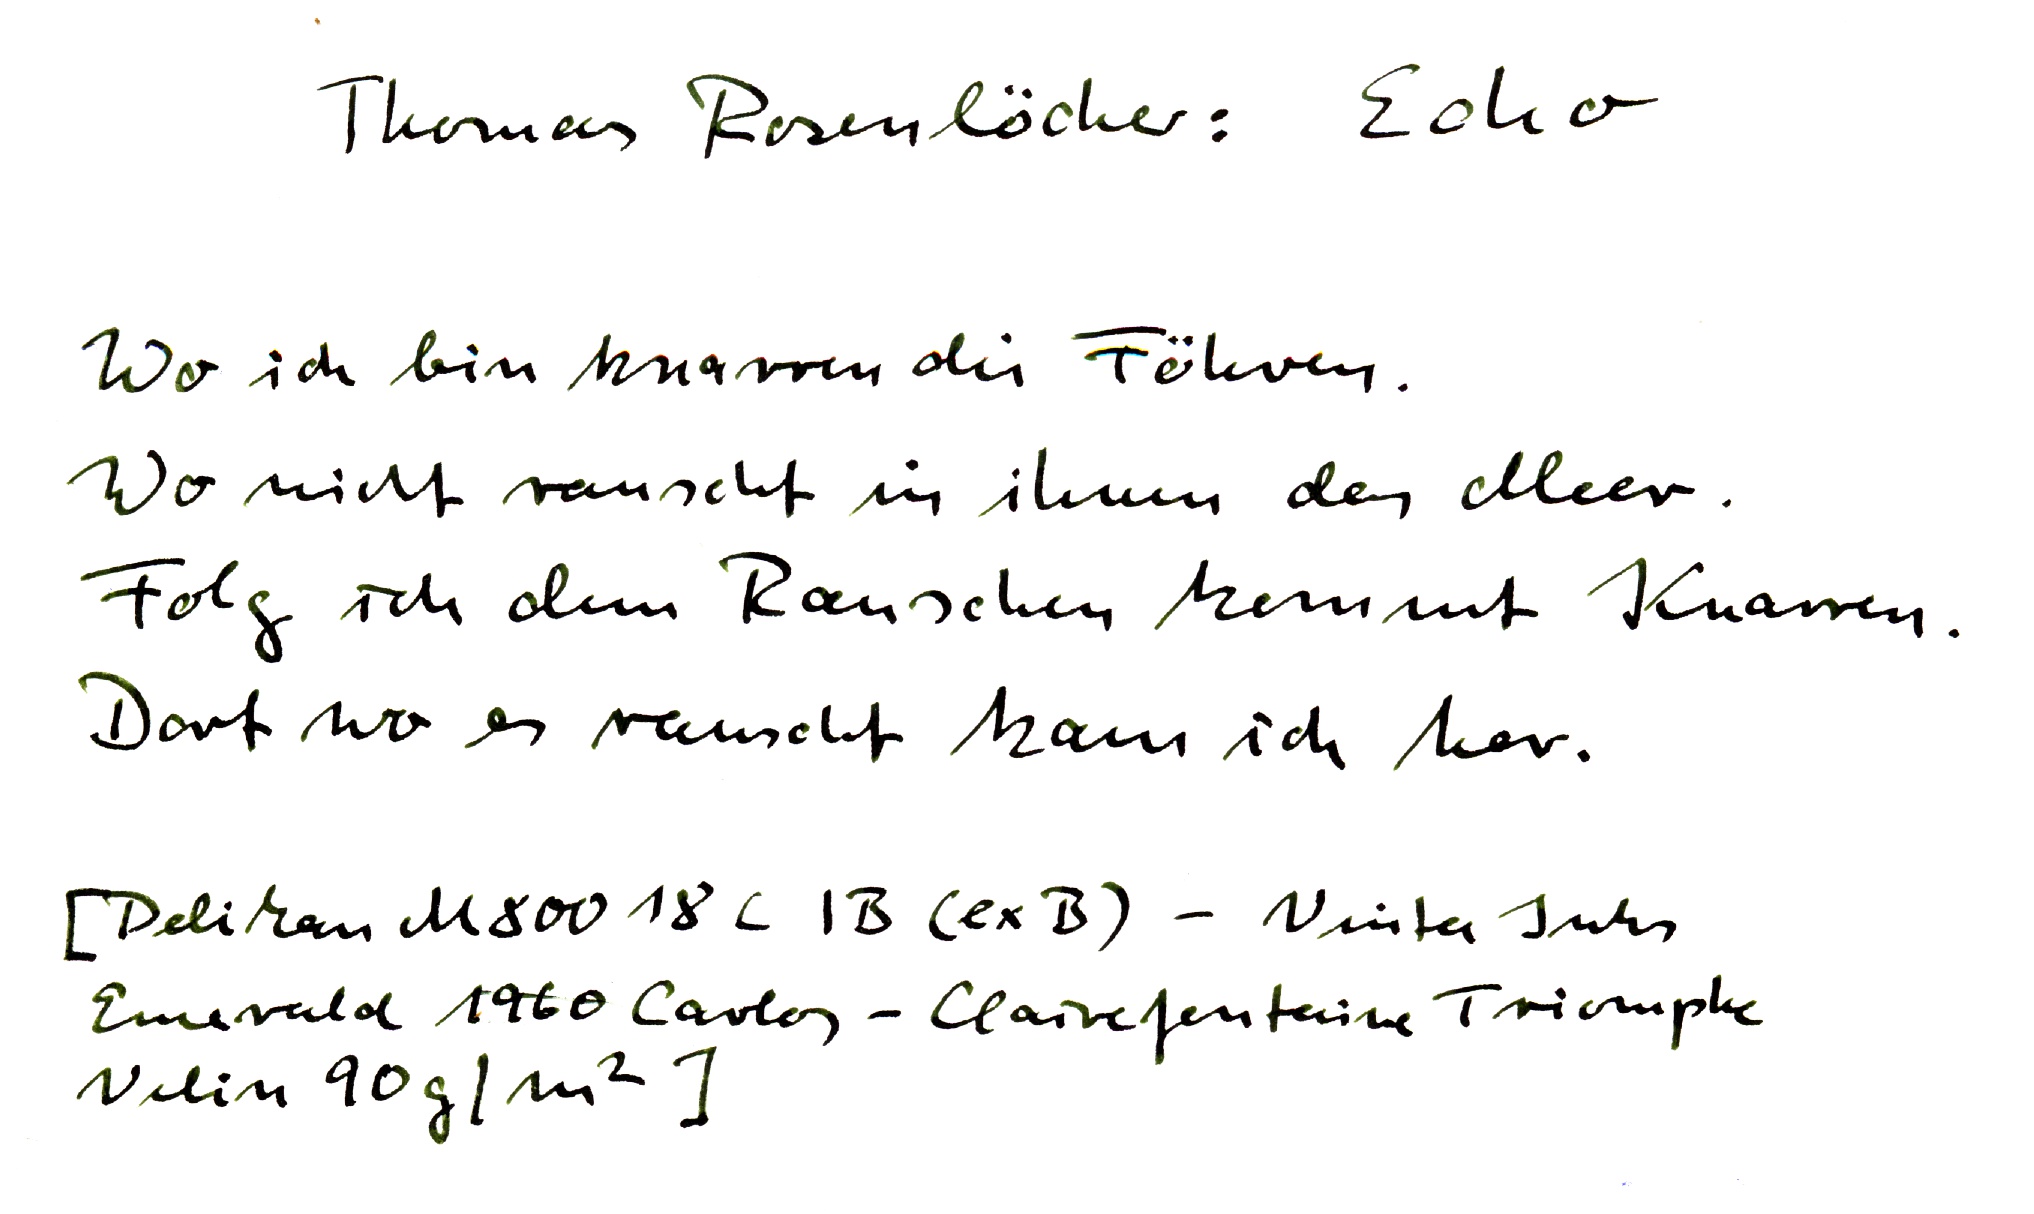 Thomas Rosenlöcher: Echo
Wo ich bin knarren die Föhren.
Wo nicht rauscht in ihnen das Meer.
Folg ich dem Rauschen kommt Knarren.
Dort wo es rauscht kam ich her.
[Pelikan M800 18 C IB (ex B) – Vinta Inks
Emerald 1960 Carlos – Clairefontaine Triomphe
Velin 90g/m²]